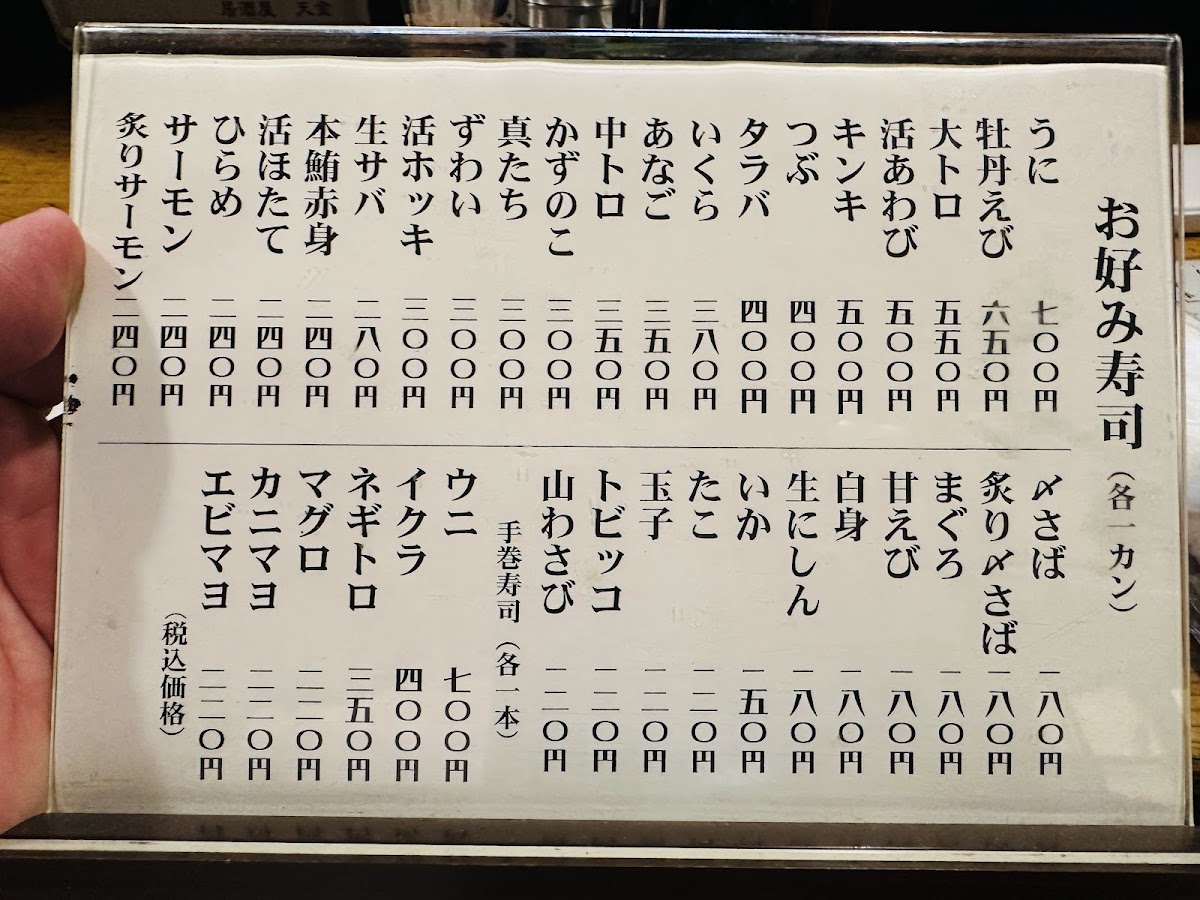 居酒屋 天金
お好み寿司(各一カン)
うに 七〇〇円
牡丹えび 六五〇円
大トロ 五五〇円
活あわび 五〇〇円
キンキ 五〇〇円
つぶ 四〇〇円
タラバ 四〇〇円
いくら 三八〇円
あなご 三五〇円
中トロ 三五〇円
かずのこ 三〇〇円
真たち 三〇〇円
ずわい 三〇〇円
活ホッキ 三〇〇円
生サバ 二八〇円
本鮪赤身 二四〇円
活ほたて 二四〇円
ひらめ 二四〇円
サーモン 二四〇円
炙りサーモン 二四〇円
〆さば 一八〇円
炙り〆さば 一八〇円
まぐろ 一八〇円
甘えび 一八〇円
白身 一八〇円
生にしん 一八〇円
いか 一五〇円
たこ 一二〇円
玉子 一二〇円
トビッコ 一二〇円
山わさび 一二〇円
手巻寿司(各一本)
ウニ 七〇〇円
イクラ 四〇〇円
ネギトロ 三五〇円
マグロ 二二〇円
カニマヨ 二二〇円
エビマヨ 二二〇円
(税込価格)